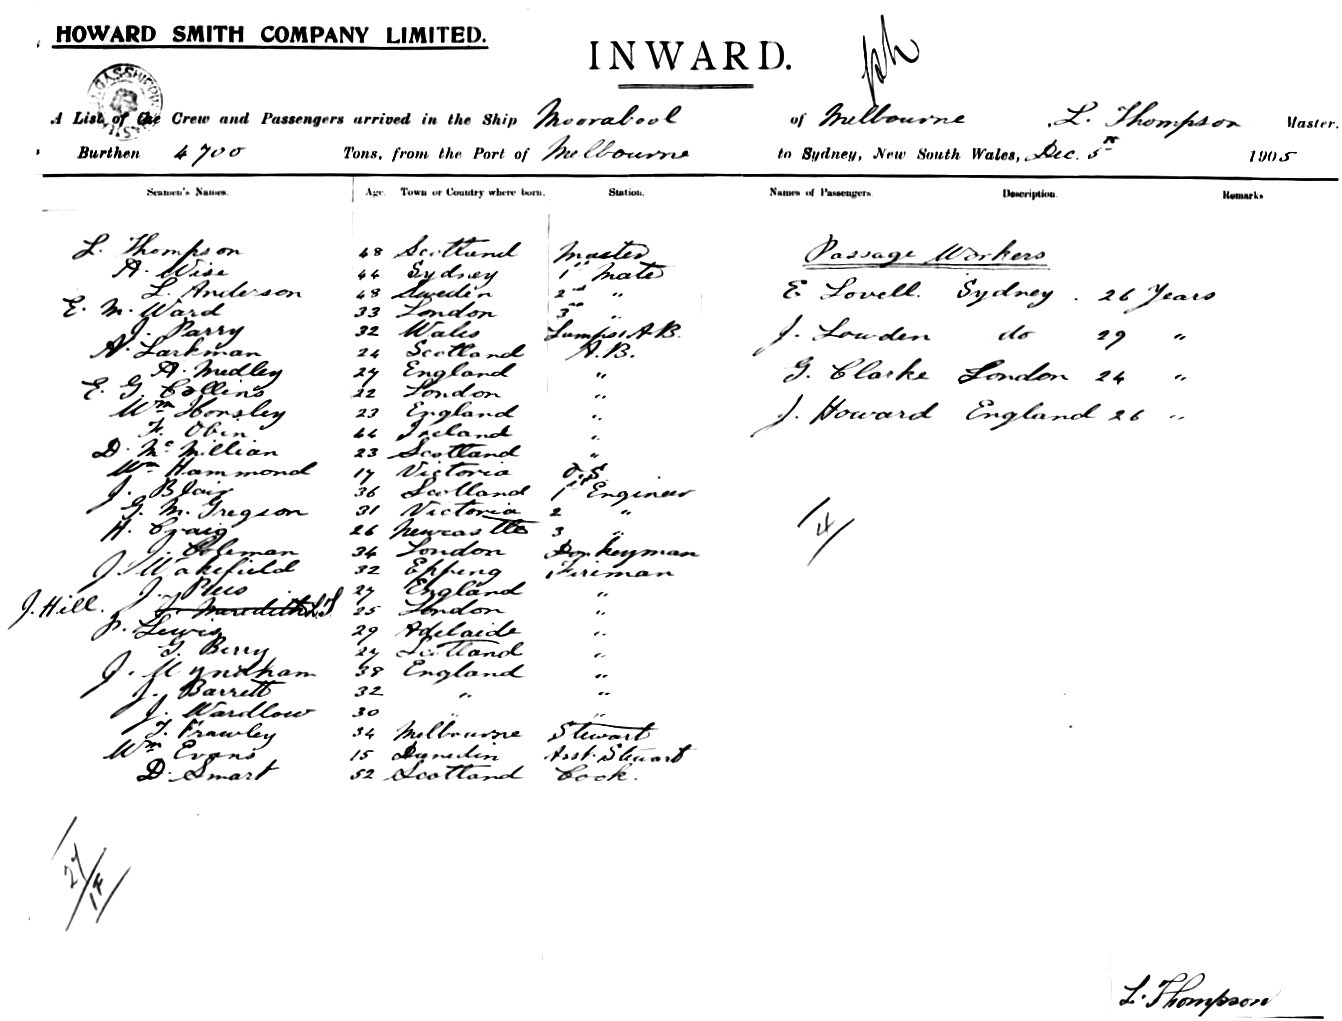 HOWARD SMITH COMPANY LIMITED.
INWARD.
A List of the Crew and Passengers arrived in the Ship Moorabool of Melbourne L. Thompson Master.
Burthen 4700 Tons, from the Port of Melbourne to Sydney, New South Wales, Dec. 5th 1905
Seamen's Names. Age. Town or Country where born. Station. Names of Passengers. Description. Remarks
L. Thompson 48 Scotland Master
Passage Workers
A. Wise 44 Sydney 1st Mate
L. Anderson 48 Sweden 2nd "
E. Lovell. Sydney. 26 Years
E. M. Ward 33 London 3rd "
J. Parry 32 Wales Lamps & A.B.
J. Lowden do 29 "
A. Larkman 24 Scotland A.B.
A. Medley 27 England "
G. Clarke London 24 "
E. G. Collins 22 London "
Wm Honsley 23 England "
J. Howard England 26 "
F. Obin 44 Ireland "
D. McMillian 23 Scotland "
Wm Hammond 17 Victoria O.S.
J. Blair 36 Scotland 1st Engineer
G. M. Gregson 31 Victoria 2 "
H. Craig 26 Newcastle 3 "
J. Coleman 34 London Donkeyman
J. Wakefield 32 Epping Fireman
J. 27 England "
J. Hill. J. Meredith L.T. 25 London "
P. Lewis 29 Adelaide "
T. Berry 27 Scotland "
J. Wyndham 38 England "
J. Barrett 32 " "
J. Wardlow 30 " "
T. Frawley 34 Melbourne Stewart
Wm Evans 15 Dunedin Asst. Stewart
D. Smart 52 Scotland Cook.
4
27
L. Thompson